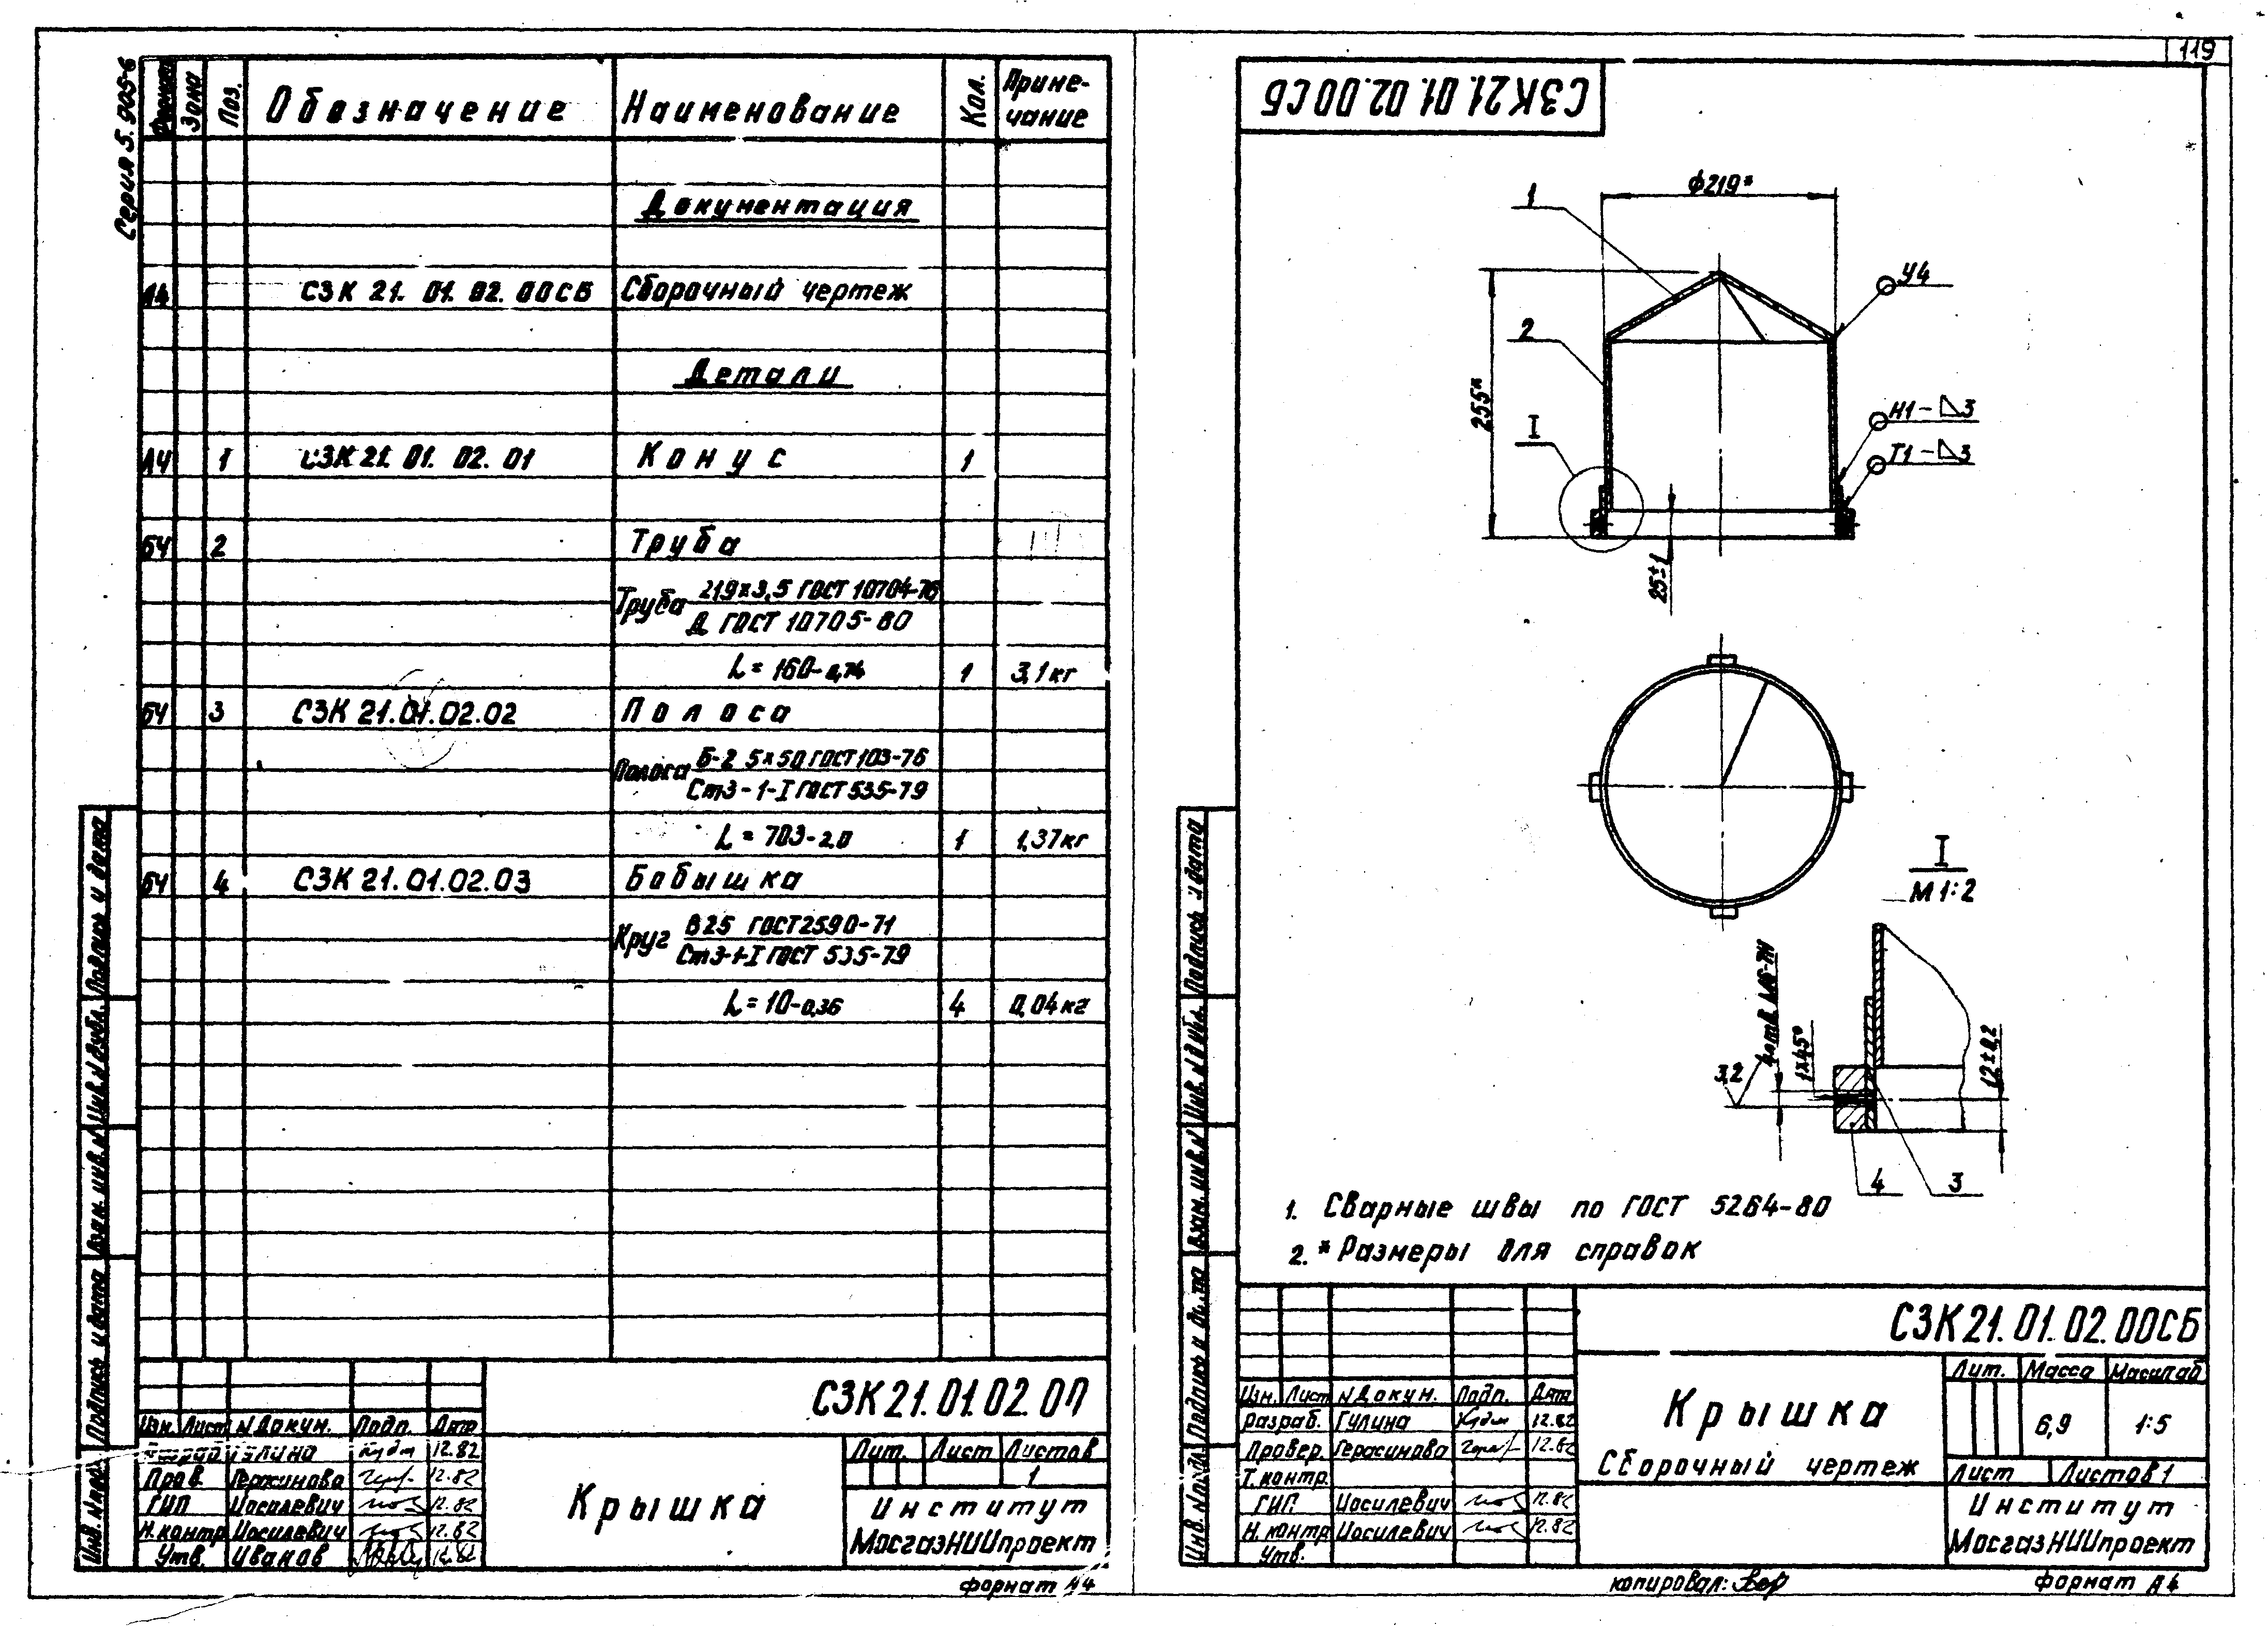 119
Серия 5.905-6
Формат Зона Поз. Обозначение Наименование Кол. Приме-
чание
Документация
А4 СЗК 21. 01. 02. 00СБ Сборочный чертеж
Детали
А4 1 СЗК 21. 01. 02. 01 Конус 1
БЧ 2 Труба
Труба 219х3,5 ГОСТ 10704-76
Д ГОСТ 10705-80
L = 160-0,74 1 3,1кг
БЧ 3 СЗК 21.01.02.02 Полоса
Полоса Б-2 5х50 ГОСТ 103-76
Ст3-1-I ГОСТ 535-79
L = 703-2,0 1 1,37кг
БЧ 4 СЗК 21.01.02.03 Бобышка
Круг В25 ГОСТ 2590-71
Ст3-1-I ГОСТ 535-79
L = 10-0,36 4 0,04кг
Инв. № подл. Подпись и дата Взам. инв. № Инв. № дубл. Подпись и дата
СЗК 21.01.02.00
Изм. Лист № Докум. Подп. Дата
Разраб. Гулина 12.82
Пров. Герасимова 12.82
ГИП Иосилевич 12.82
Н.контр Иосилевич 12.82
Утв. Иванов 12.82
Крышка
Лит. Лист Листов
1
Институт
МосгазНИИпроект
формат А4
СЗК 21.01.02.00СБ
ф219*
1
2
I
255*
25±1
У4
Н1-◺3
Т1-◺3
I
М 1:2
3,2
1х45°
12±0,2
4
3
1. Сварные швы по ГОСТ 5264-80
2. * Размеры для справок
Инв. № подл. Подпись и дата Взам. инв. № Инв. № дубл. Подпись и дата
СЗК 21.01.02.00СБ
Изм. Лист № Докум. Подп. Дата
Разраб. Гулина 12.82
Провер. Герасимова 12.82
Т.контр.
ГИП. Иосилевич 12.82
Н.контр Иосилевич 12.82
Утв.
Крышка
Сборочный чертеж
Лит. Масса Масштаб
6,9 1:5
Лист Листов 1
Институт
МосгазНИИпроект
копировал:
формат А4